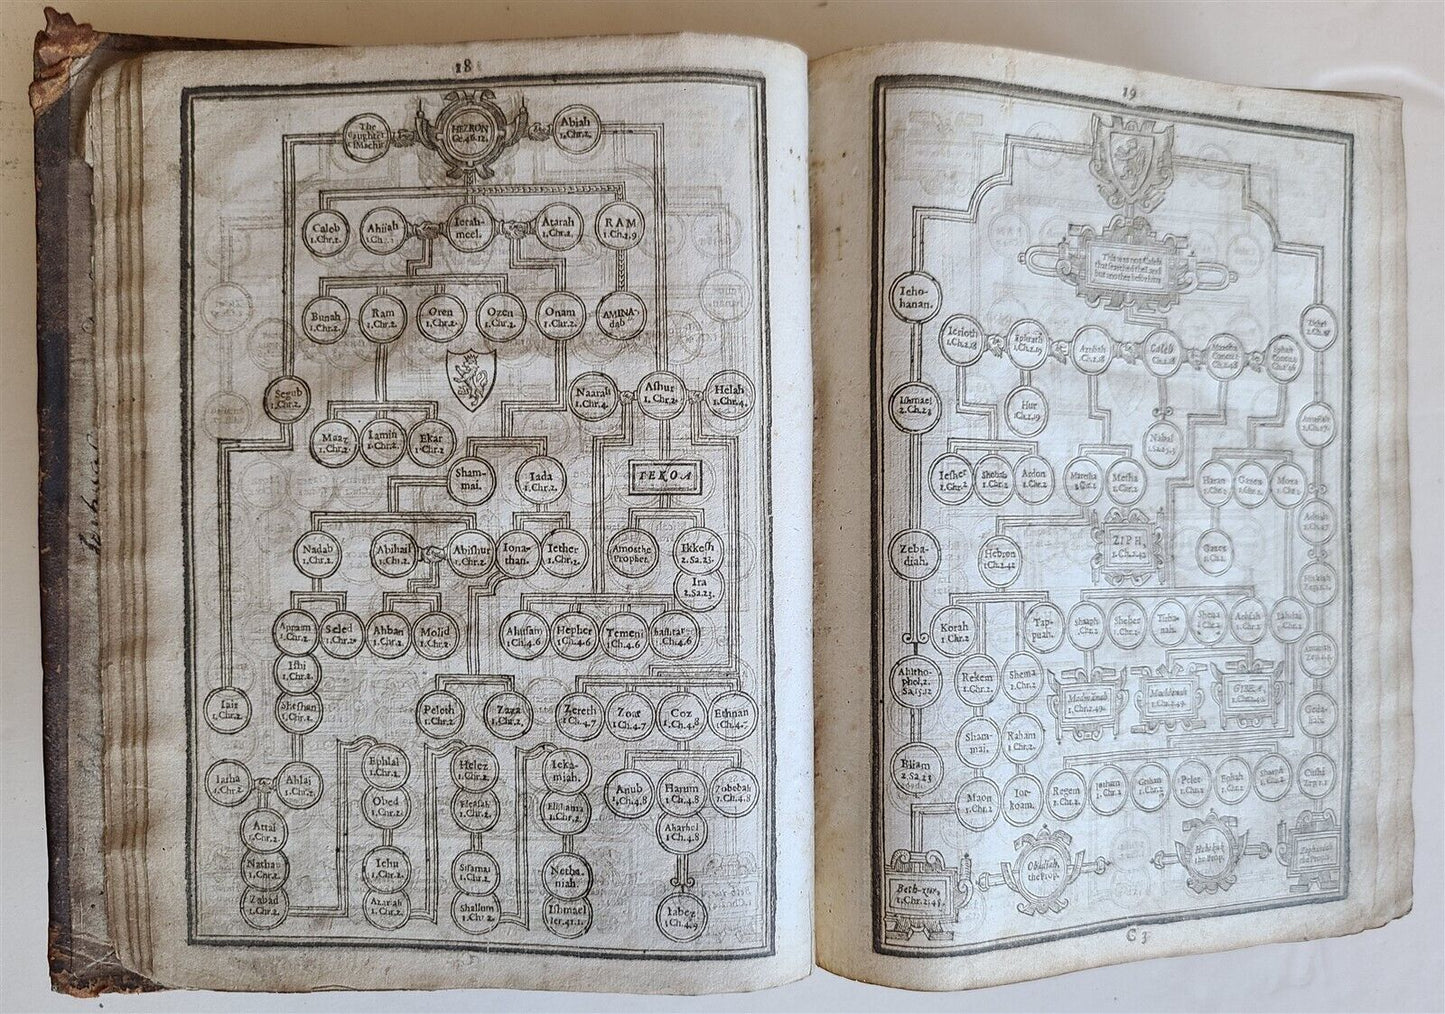 18
The
daughter
Machir
HEZRON
Ge.46.12.
Abiah
1.Chr.2.
Caleb
1.Chr.2.
Ahijah
Ierah-
meel.
Atarah
1.Chr.2.
RAM
1.Ch.2.9
Bunah
1.Chr.2.
Ram
1.Chr.2.
Oren
1.Chr.2.
Ozen
1.Chr.2.
Onam
1.Chr.2.
AMINA-
dab
Segub
1.Chr.2.
Naarah
1.Chr.4.
Ashur
1.Chr.2.
Helah
1.Chr.4.
Maaz
1.Chr.2.
Iamin
1.Chr.2.
Ekar
1.Chr.2
Sham-
mai.
Iada
1.Chr.2.
TEKOA
Nadab
1.Chr.2.
Abihail
1.Chr.2.
Abishur
1.Chr.2
Iona-
than.
Iether
1.Chr.2.
Amos the
Prophet.
Ikkesh
2.Sa.23.
Ira
2.Sa.23.
Appaim
1.Chr.2
Seled
1.Chr.2.
Ahban
1.Chr.2.
Molid
1.Chr.2.
Ahusam
1Ch.4.6
Hepher
1.Ch.4.6
Temeni
1Ch.4.6
1.Ch.4.6
Ishi
1.Chr.2.
Iair
1.Chr.2.
Sheshan
1.Chr.2.
Peleth
1.Chr.2.
Zaza
1.Chr.2.
Zereth
1Ch.4.7
Zoar
1Ch.4.7
Coz
1.Ch.4.8
Ethnan
1Ch.4.7
Iarha
1.Chr.2
Ahlai
1.Chr.2.
Ephlal
1.Chr.2.
Helez
1.Chr.2.
Ieka-
miah.
Anub
1.Ch.4.8
Harum
1Ch.4.8
Zobebah
1.Ch.4.8
Obed
1.Chr.2.
Eleasah
1.Chr.2.
Elishama
1.Chr.2.
Attai
1.Chr.2.
Aharhel
1.Ch.4.8
Nathan
1.Chr.2.
Iehu
1.Chr.2.
Sisamai
1.Chr.2
Netha-
niah.
Zabad
1.Chr.2.
Azariah
1.Chr.2.
Shallum
1.Chr.2.
Ishmael
Ier.41.1.
Iabez
1Ch.4.9
19
This was not Caleb
that searched the Land
but another before him
Ieho-
hanan.
Ierioth
1.Ch.2.18
Ephrath
1.Ch.2.19
Azubah
1.Ch.2.18
Caleb
1.Ch.2.18
Ishmael
2.Ch.23
Hur
1.Ch.2.19
Nabal
Iesher
1.Chr.2
Shobab
1.Chr.2
Ardon
1.Chr.2
Maresha
1.Chr.2
Mesha
1.Chr.2
Haran
1.Chr.2
Gazez
1.Chr.2.
Moza
Zeba-
diah.
Hebron
1.Ch.2.42
ZIPH
1.Ch.2.42
Gazez
1.Ch.2
Korah
1.Chr.2
Tap-
puah.
Shaaph
1.Chr.2
Sheber
1.Chr.2.
Tirha-
nah.
Sheua
1.Chr.2
Achsah
1.Chr.2
Ahitho-
phel.2.
Sa.15.12
Rekem
1.Chr.2.
Shema
1.Chr.2
Madmanah
1.Chr.2.49.
Machbenah
1.Chr.2.49.
GIBEA,
1.Chr.2.49.
Sham-
mai.
Raham
1.Chr.2.
Eliam
2.Sa.23
Maon
1.Chr.2
Ior-
koam.
Regem
1.Chr.2.
Iotham
1.Chr.2
Geshan
1.Chr.2.
Pelet
1.Chr.2
Ephah
1.Chr.2
Shaaph
1.Chr.2
Cushi
Zep.1.1
Obadiah,
the Prop.
Habakuk
the Prop.
Zephaniah
the Proph.
Beth-zur,
1.Chr.2.45.
C 3